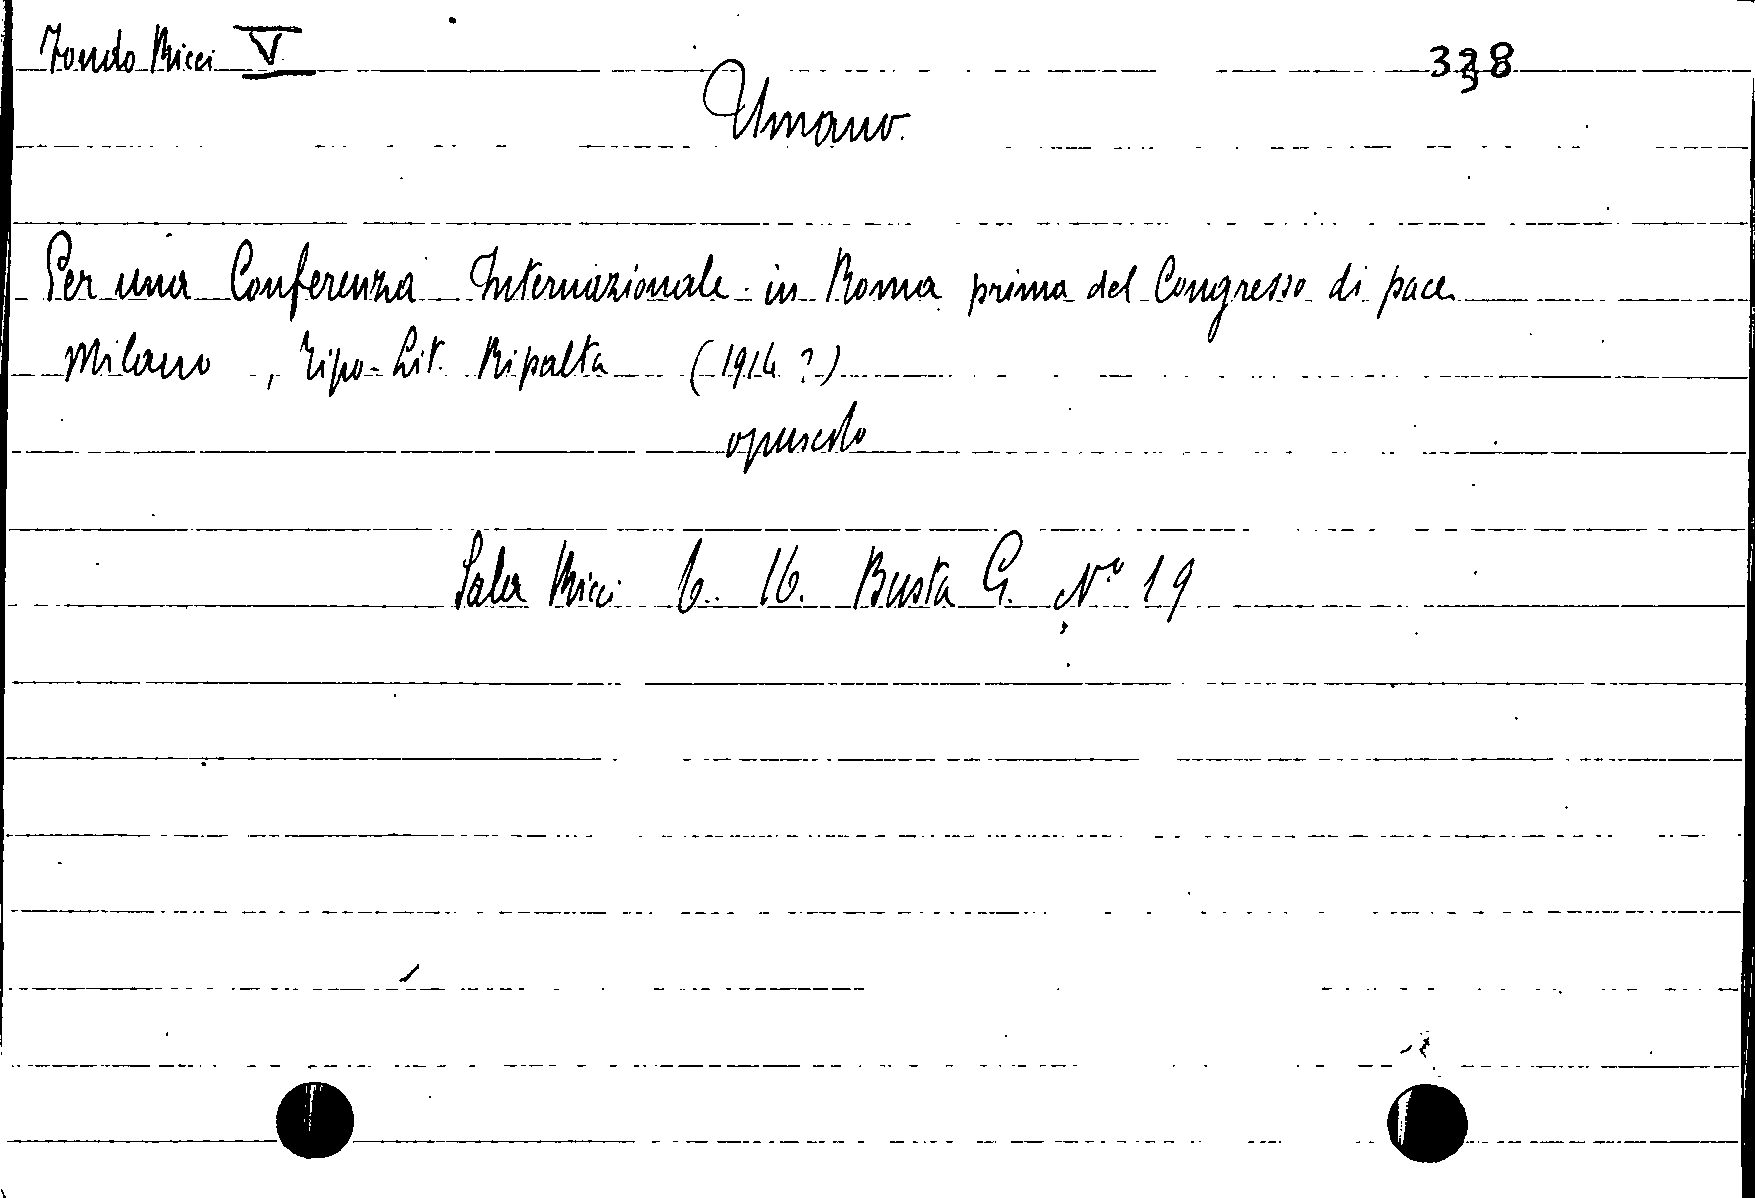 Fondo Ricci V
338
Umano.
Per una Conferenza Internazionale in Roma prima del Congresso di pace
Milano, Tipo-Lit. Ripalta (1914?)
opuscolo
Sala Ricci 6. 16. Busta G. N° 19